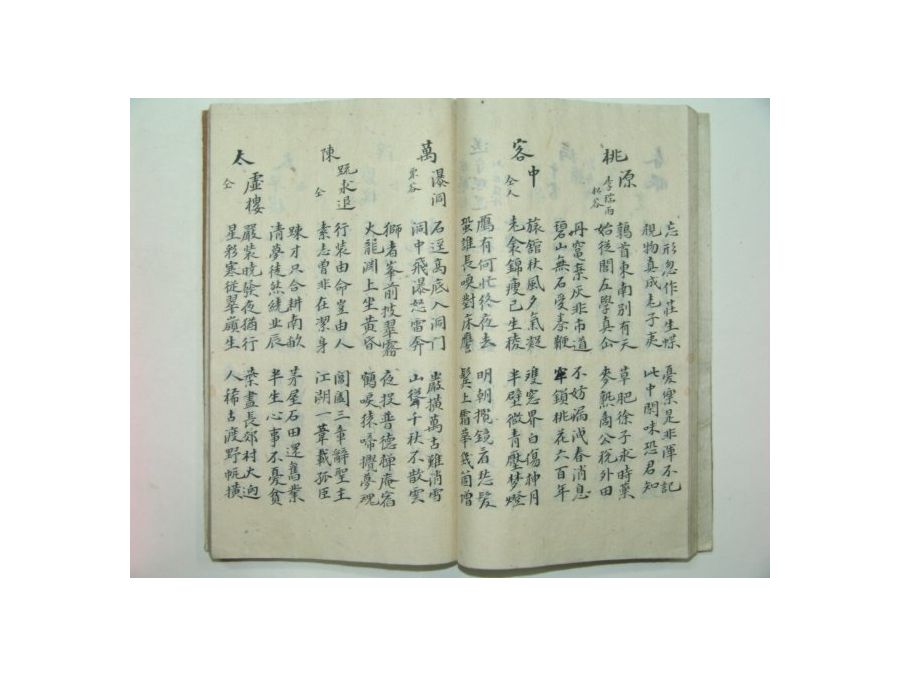 忘形忽作莊生蝶 憂樂是非渾不記
觀物真成老子夷 此中閑味恐君知
桃源 李瑞雨 松谷
鶉首東南別有天 草肥徐子永時藥
始從關左學真仚 麥熟商公稅外田
丹竈棄灰非市道 不妨漏洩春消息
碧山無石受秦鞭 牢鎖桃花六百年
客中 仝人
旅舘秋風夕氣凝 窓界白傷神月
老金錦瘦已生稜 半壁微青壓梦燈
鴈有何忙終夜去 明朝攬鏡看愁髮
蛩誰長喚對床譍 鬓上霜華幾箇增
萬瀑洞 東谷
石逕高底入洞门 巖橫萬古難消雪
洞中飛瀑怒雷奔 山聳千秋不散雲
獅者峯前披翠霧 夜投普德禅庵宿
火龍渊上坐黄昏 鶴唳猿啼攪夢魂
陳䟽求退 仝
行装由命豈由人 閶闔三章辭聖主
素志曾非在潔身 江湖一葦載孤臣
踈才只合耕南畝 茅屋石田還舊業
清夢徒然繞北辰 半生心事不憂貧
太虛樓 仝
嚴装曉發夜猶行 桑盡長郊村大迥
星彩寒從翠巓生 人稀古渡野帆橫